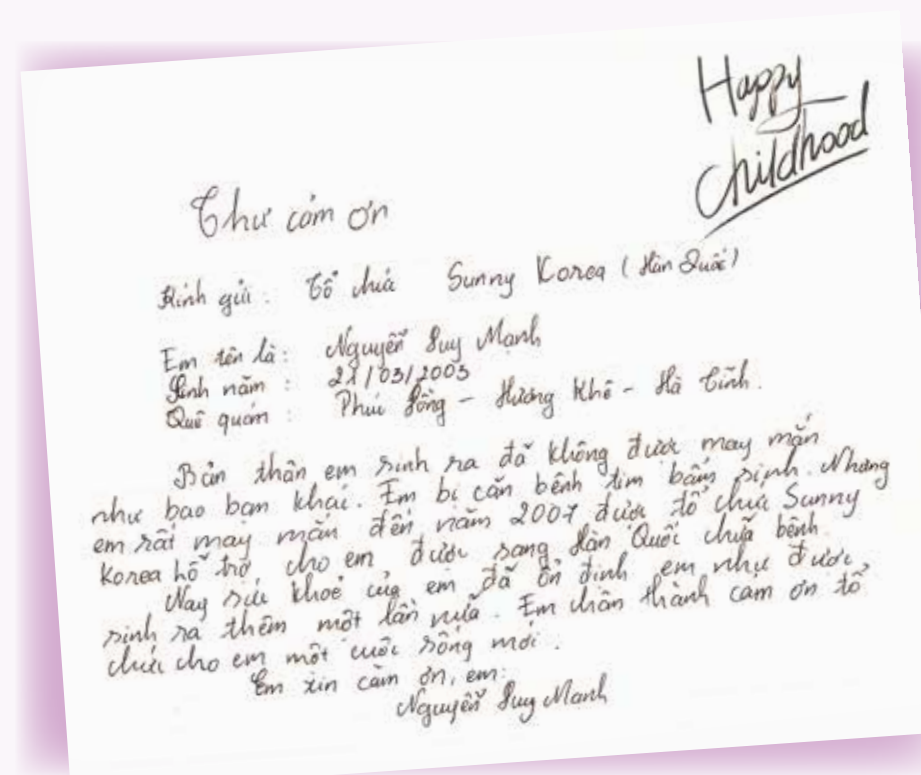 Happy
Childhood
Thư cảm ơn
Kính gửi : Tổ chức Sunny Korea ( Hàn Quốc )
Em tên là : Nguyễn Duy Mạnh
Sinh năm : 21/03/2003
Quê quán : Phúc Đồng - Hương Khê - Hà Tĩnh.
Bản thân em sinh ra đã không được may mắn
như bao bạn khác. Em bị căn bệnh tim bẩm sinh. Nhưng
em rất may mắn đến năm 2007 được tổ chức Sunny
Korea hỗ trợ cho em được sang Hàn Quốc chữa bệnh.
Nay sức khoẻ của em đã ổn định em như được
sinh ra thêm một lần nữa. Em chân thành cảm ơn tổ
chức cho em một cuộc sống mới.
Em xin cảm ơn, em:
Nguyễn Duy Mạnh